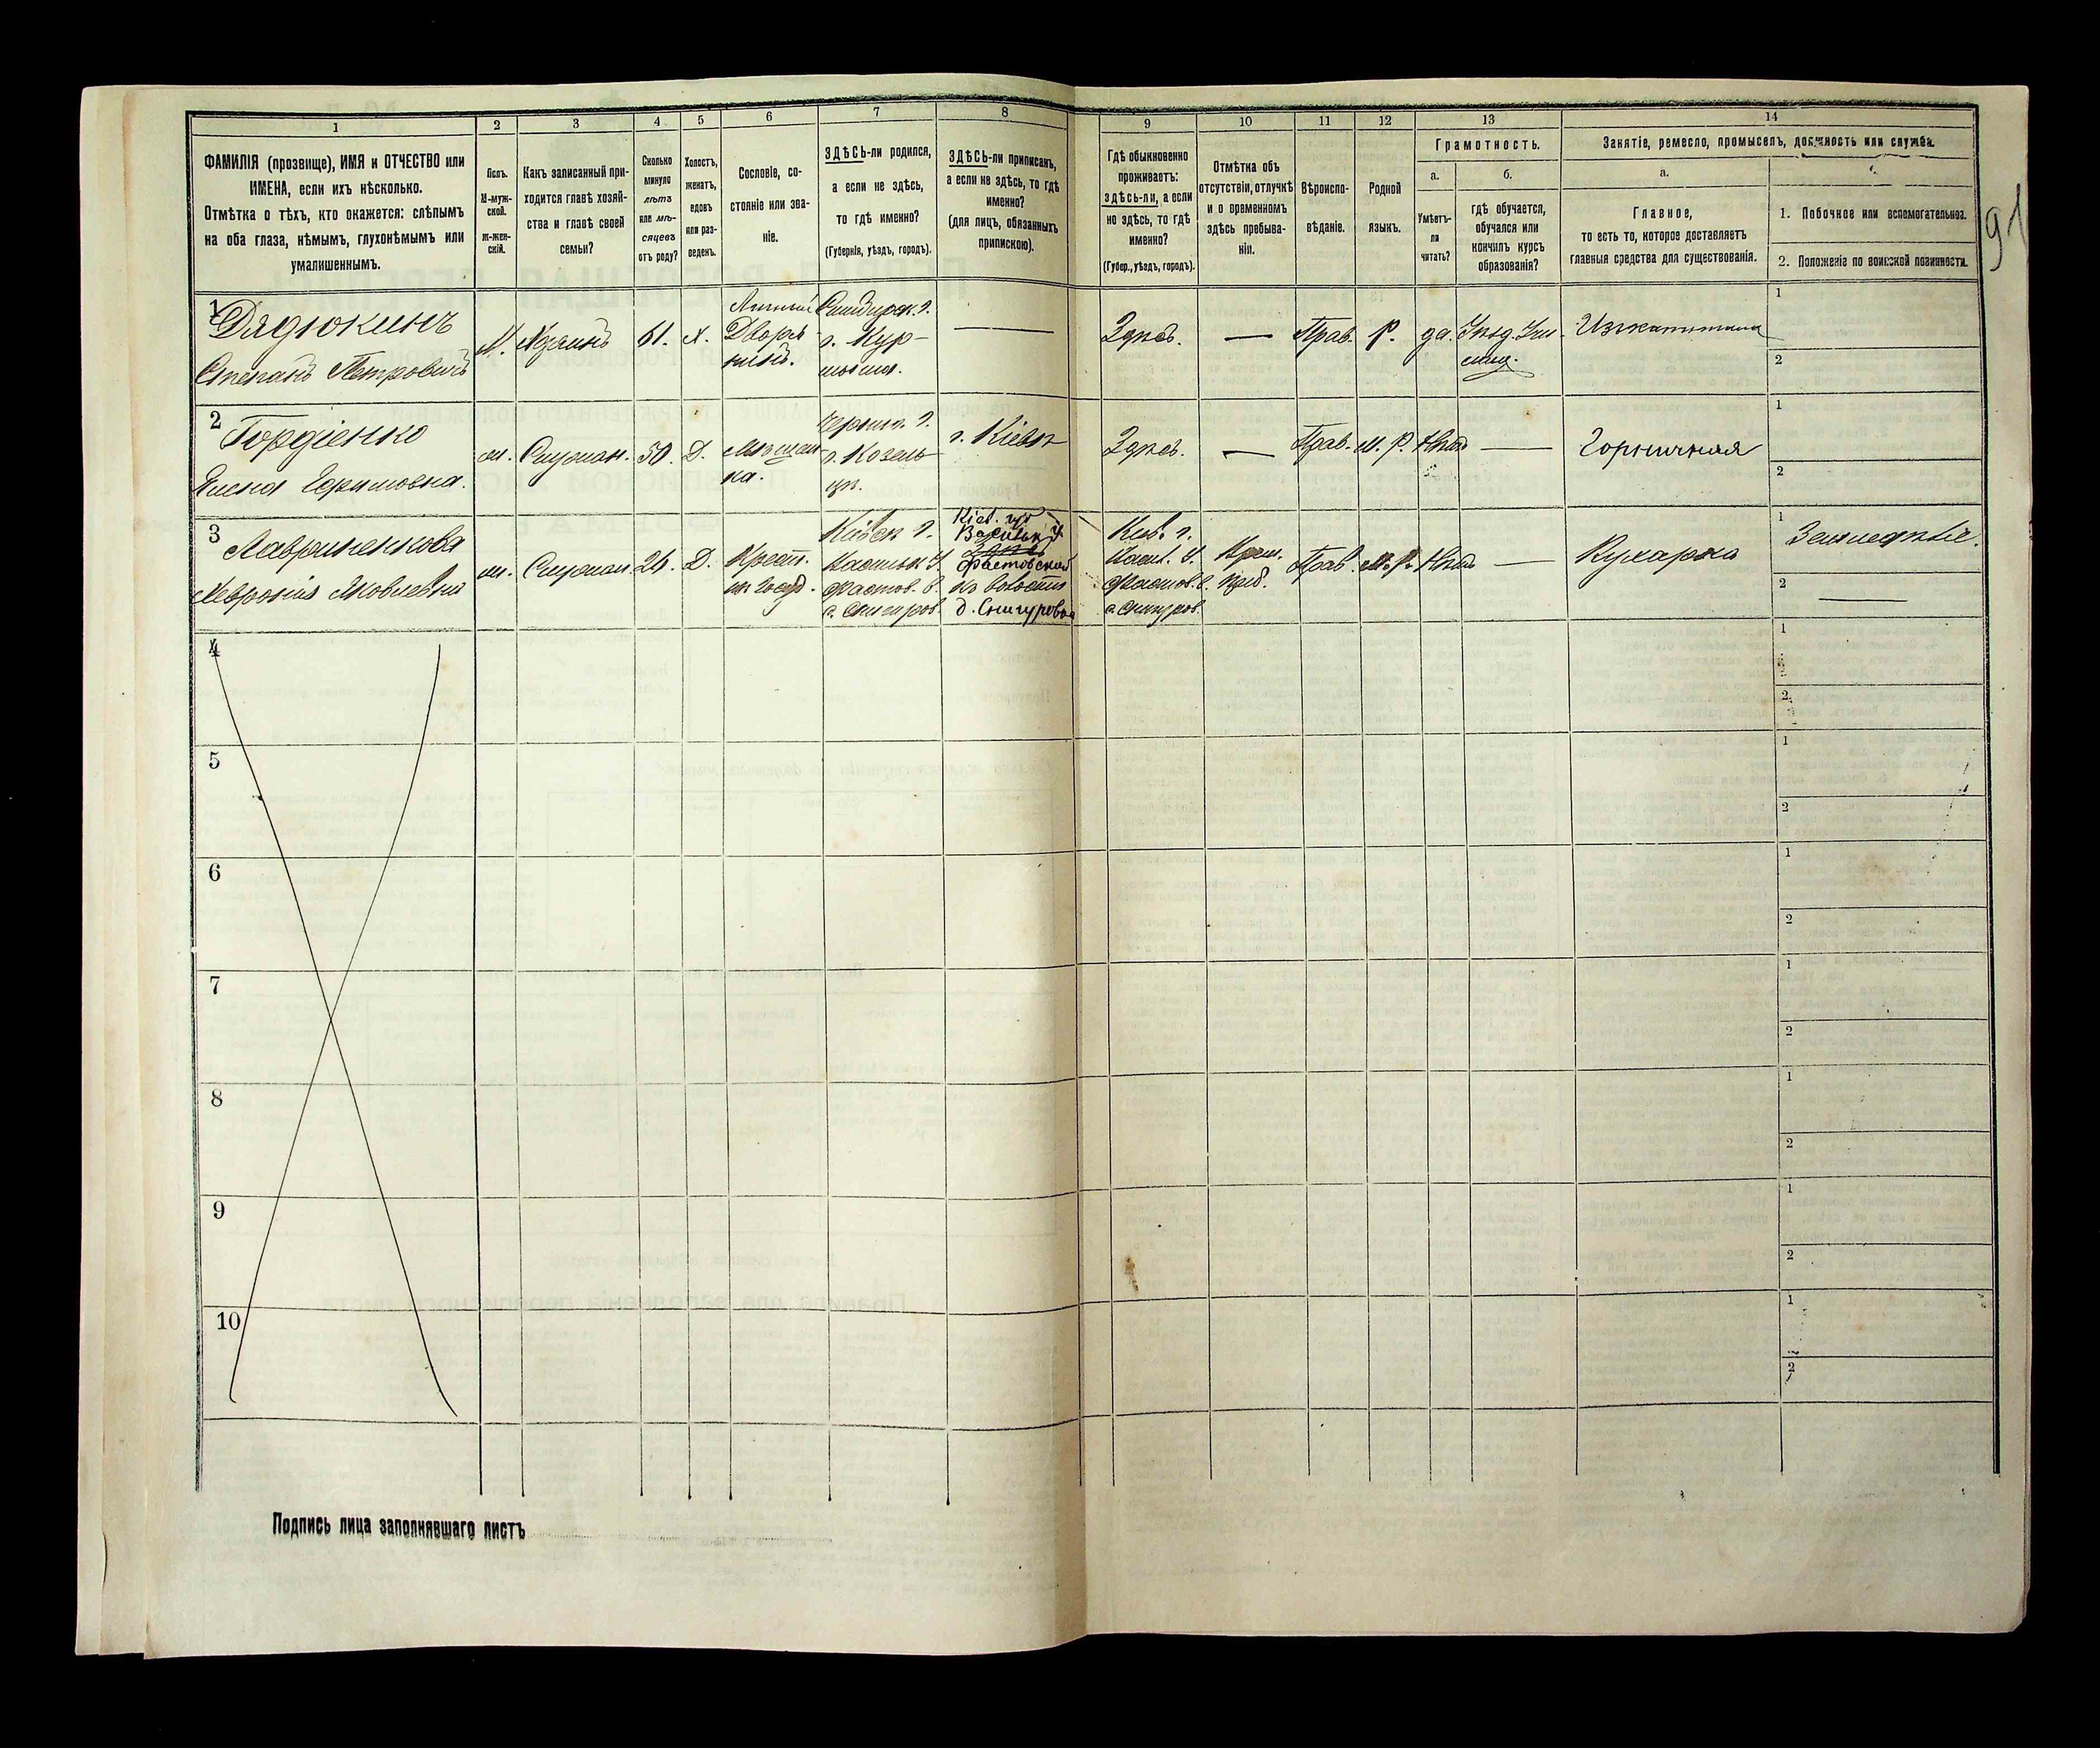 1
2
3
4
5
6
7
8
ФАМИЛІЯ (прозвище), ИМЯ и ОТЧЕСТВО или
ИМЕНА, если ихъ нѣсколько.
Отмѣтка о тѣхъ, кто окажется: слѣпымъ
на оба глаза, нѣмымъ, глухонѣмымъ или
умалишеннымъ.
Полъ.
М-муж-
ской.
Ж-жен-
скій.
Какъ записанный при-
ходится главѣ хозяй-
ства и главѣ своей
семьи?
Сколько
минуло
лѣтъ
или мѣ-
сяцевъ
отъ роду?
Холостъ,
женатъ,
вдовъ
или раз-
веденъ.
Сословіе, со-
стояніе или зва-
ніе.
ЗДѢСЬ-ли родился,
а если не здѣсь,
то гдѣ именно?
(Губернія, уѣздъ, городъ).
ЗДѢСЬ-ли приписанъ,
а если не здѣсь, то гдѣ
именно?
(для лицъ, обязанныхъ
припискою).
9
10
11
12
13
14
Гдѣ обыкновенно
проживаетъ:
здѣсь-ли, а если
не здѣсь, то гдѣ
именно?
(Губер., уѣздъ, городъ).
Отмѣтка объ
отсутствіи, отлучкѣ
и о временномъ
здѣсь пребыва-
ніи.
Вѣроиспо-
вѣданіе.
Родной
языкъ.
Грамотность.
а.
Умѣетъ-
ли
читать?
б.
гдѣ обучается,
обучался или
кончилъ курсъ
образованія?
Занятіе, ремесло, промыселъ, должность или служба.
а.
Главное,
то есть то, которое доставляетъ
главныя средства для существованія.
1. Побочное или вспомогательное.
2. Положеніе по воинской повинности.
91
1
Дядюкинъ
Степанъ Петровичъ
М.
Хозяинъ
61.
Х.
Личный
Дворя
нинъ.
Симбирск. г.
г. Кур-
мышъ.
Здѣсь.
Прав.
Р.
да.
Уѣзд. Учи
лищ.
1
2
2
Гордіенко
Елена Ефимовна.
ж.
Служан.
50.
Д.
Мѣщан
ка.
Черниг. г.
г. Козель
цѣ.
г. Кіевъ
Здѣсь.
Прав.
М. Р.
Нѣтъ
Горничная
1
2
3
Лавриненкова
Хевронія Яковлевна
ж.
Служан.
26.
Д.
Крест.
Кіевск г.
Васильк У.
Фастов. в.
с. Снигиров.
Кіев. губ
Васильк у
Здѣсь
Фастовской
волости
д. Снигуровка
Кіев. г.
Васил. У.
Фастов. в.
с. Снигуров.
Врем.
преб.
Прав.
М. Р.
Нѣтъ
Кухарка
1
Земледѣліе.
2
4
1
2
5
1
2
6
1
2
7
1
2
8
1
2
9
1
2
10
1
2
Подпись лица заполнявшаго листъ